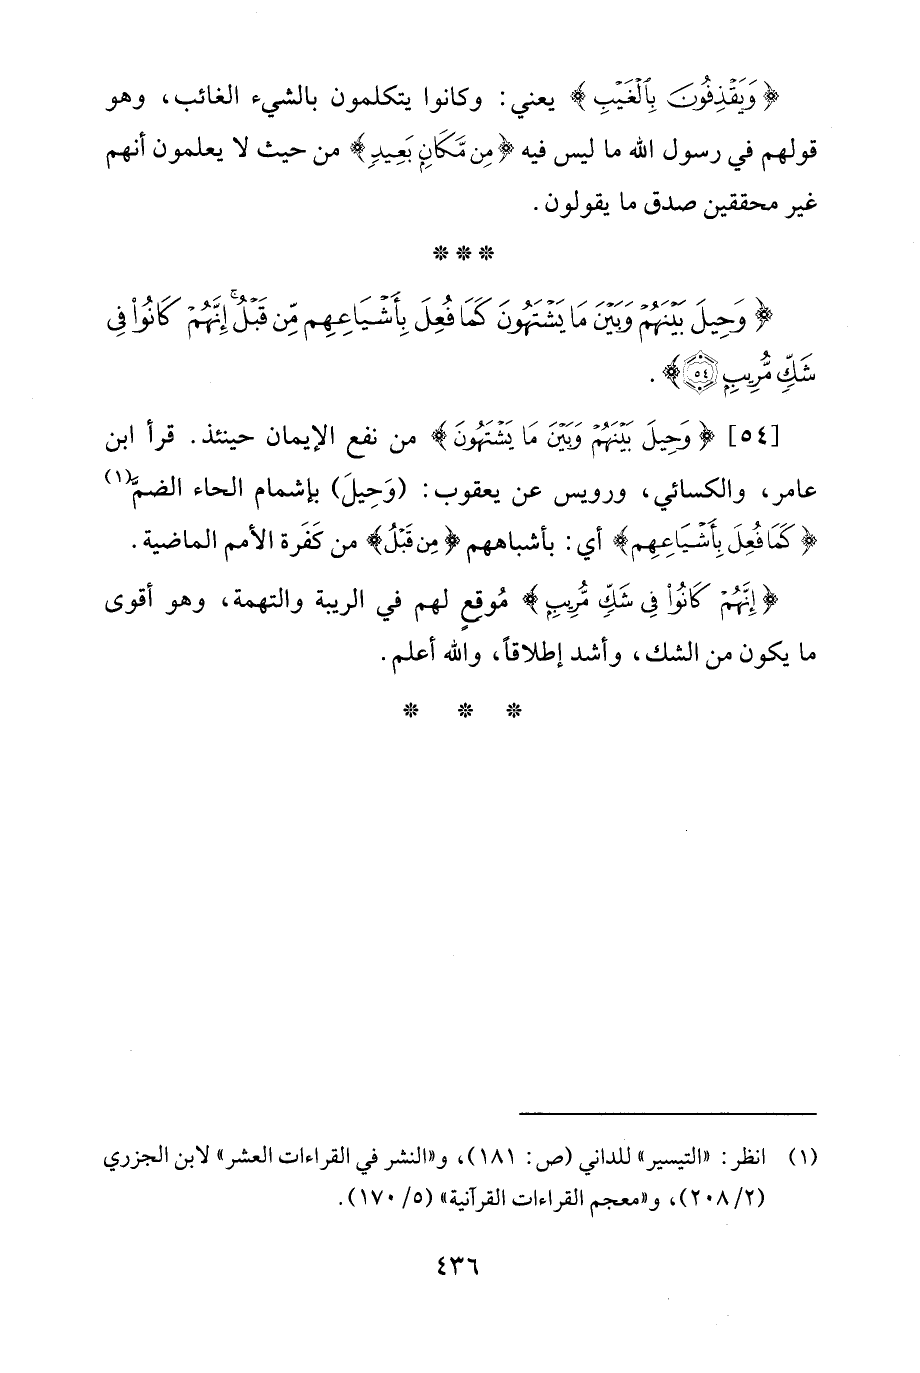 ﴿وَيَقْذِفُونَ بِالْغَيْبِ﴾ يعني: وكانوا يتكلمون بالشيء الغائب، وهو
قولهم في رسول الله ما ليس فيه ﴿مِن مَّكَانٍ بَعِيدٍ﴾ من حيث لا يعلمون أنهم
غير محققين صدق ما يقولون.
* * *
﴿وَحِيلَ بَيْنَهُمْ وَبَيْنَ مَا يَشْتَهُونَ كَمَا فُعِلَ بِأَشْيَاعِهِم مِّن قَبْلُ ۚ إِنَّهُمْ كَانُوا۟ فِى
شَكٍّ مُّرِيبٍ ﴿٥٤﴾﴾.
[٥٤] ﴿وَحِيلَ بَيْنَهُمْ وَبَيْنَ مَا يَشْتَهُونَ﴾ من نفع الإيمان حينئذ. قرأ ابن
عامر، والكسائي، ورويس عن يعقوب: (وَحِيلَ) بإشمام الحاء الضمَّ(١)
﴿كَمَا فُعِلَ بِأَشْيَاعِهِم﴾ أي: بأشباههم ﴿مِن قَبْلُ﴾ من كَفَرة الأمم الماضية.
﴿إِنَّهُمْ كَانُوا۟ فِى شَكٍّ مُّرِيبٍ﴾ مُوقعٍ لهم في الريبة والتهمة، وهو أقوى
ما يكون من الشك، وأشد إطلاقاً، والله أعلم.
* * *
(١) انظر: «التيسير» للداني (ص: ١٨١)، و«النشر في القراءات العشر» لابن الجزري
(٢/ ٢٠٨)، و«معجم القراءات القرآنية» (٥/ ١٧٠).
٤٣٦